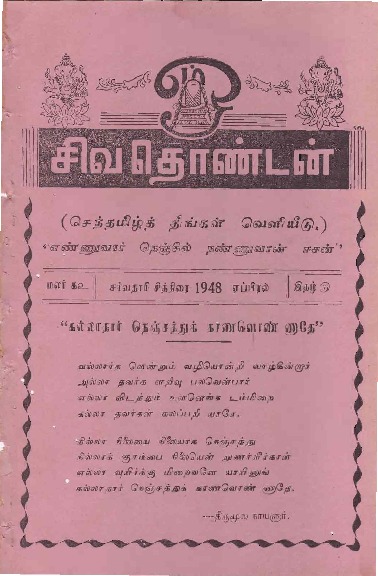 ஓம்
சிவ தொண்டன்
(செந்தமிழ்த் திங்கள் வெளியீடு.)
"எண்ணுவார் நெஞ்சில் நண்ணுவான் ஈசன்"
மலர் சர்வதாரி சித்திரை 1948 ஏப்ரல் இதழ் ௫
"கல்லாதார் நெஞ்சத்துக் காணவொண் ணாதே"
வல்லார்க ளென்றும் வழியொன்றி வாழ்கின்றார்
அல்லா தவர்க ளறிவு பலவென்பார்
எல்லா விடத்தும் உளனெங்க டம்மிறை
கல்லா தவர்கள் கலப்பறி யாரே.
நில்லா நிலையை நிலையாக நெஞ்சத்து
நில்லாக் குரம்பை நிலையென் றுணர்வீர்காள்
எல்லா வுயிர்க்கு மிறைவனே யாயினுங்
கல்லாதார் நெஞ்சத்துக் காணவொண் ணாதே.
—திருமூல நாயனார்.